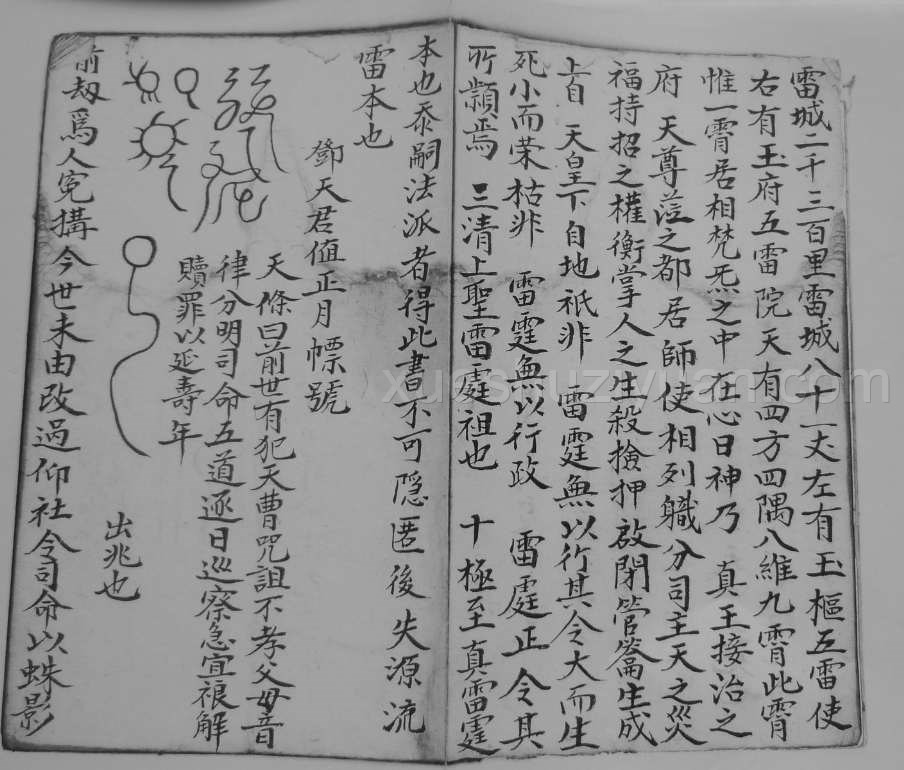 雷城二千三百里雷城八十一丈左有玉樞五雷使
右有王府五雷院天有四方四隅八維九霄此霄
惟一霄居相梵炁之中在心曰神乃 真王接治之
府 天尊蒞之都居師使相列職分司主天之災
福持招之權衡掌人之生殺撿押啟閉管籥生成
上自 天皇下自地祇非 雷霆無以行其令大而生
死小而荣枯非 雷霆無以行政 雷霆正令其
所纇焉 三清上聖雷霆祖也 十極至真雷霆
本也泰嗣法派者得此書不可隱匿後失源流
雷本也
鄧天君值正月幖號
天條曰前世有犯天曹咒詛不孝父母音
律分明司命五道逐日巡察急宜禳解
贖罪以延壽年
出兆也
前劫爲人冤搆今世未由改過仰社令司命以蛛影
xueshuziyuan.com